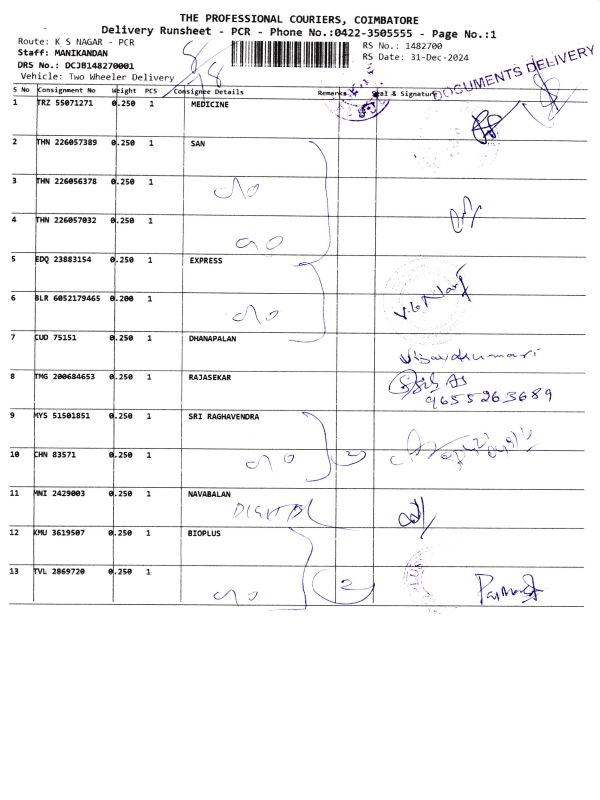 THE PROFESSIONAL COURIERS, COIMBATORE
Delivery Runsheet - PCR - Phone No.:0422-3505555 - Page No.:1
Route: K S NAGAR - PCR
RS No.: 1482700
Staff: MANIKANDAN
RS Date: 31-Dec-2024
DRS No.: DCJB148270001
DOCUMENTS DELIVERY
Vehicle: Two Wheeler Delivery
S No Consignment No Weight PCS Consignee Details Remarks Seal & Signature
1 TRZ 55071271 0.250 1 MEDICINE
2 THN 226057389 0.250 1 SAN
3 THN 226056378 0.250 1
4 THN 226057032 0.250 1
5 EDQ 23883154 0.250 1 EXPRESS
6 BLR 6052179465 0.200 1
7 CUD 75151 0.250 1 DHANAPALAN
Vijayakumari
8 TMG 200684653 0.250 1 RAJASEKAR
9655263689
9 MYS 51501851 0.250 1 SRI RAGHAVENDRA
10 CHN 83571 0.250 1 2
11 MNI 2429003 0.250 1 NAVABALAN
DIGITAL
12 KMU 3619507 0.250 1 BIOPLUS
13 TVL 2869720 0.250 1 2